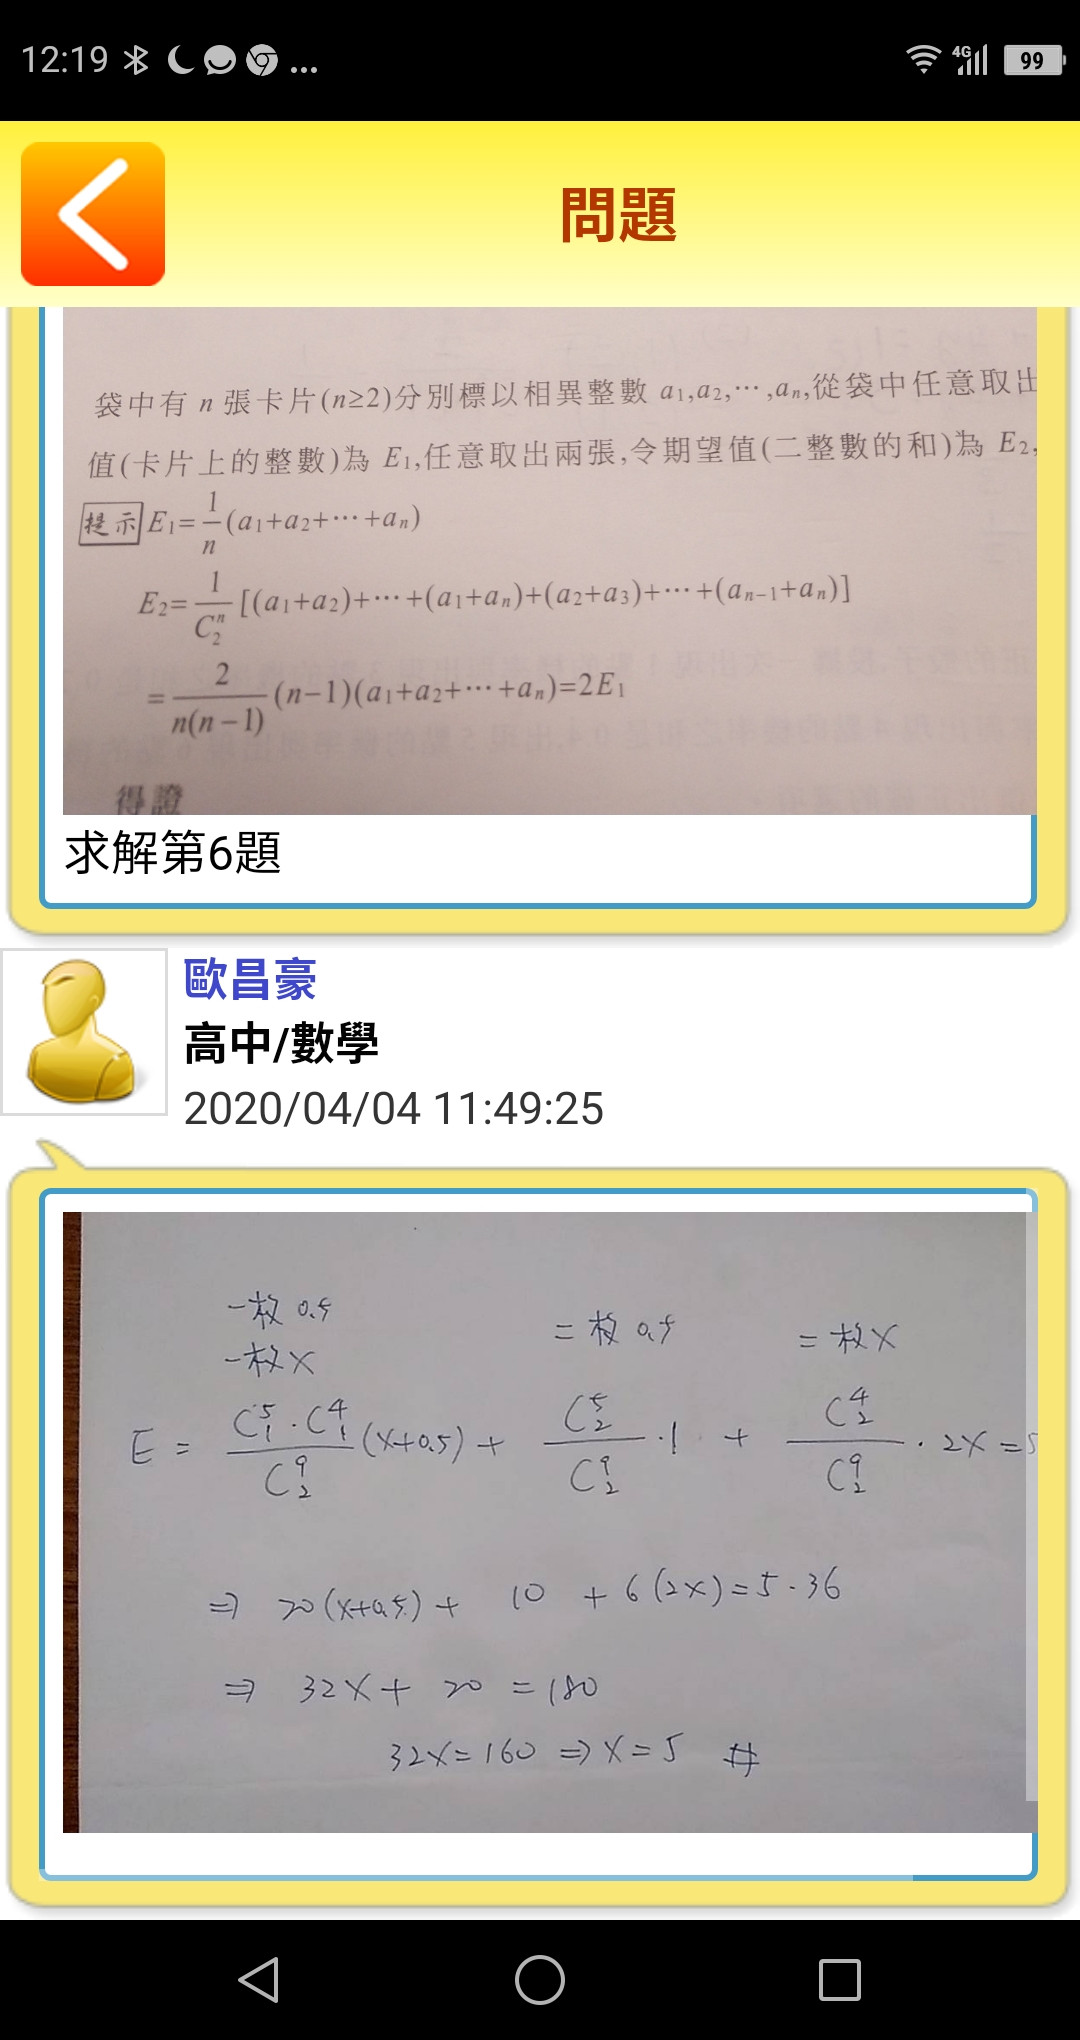 12:19 ...
4G 99
問題
袋中有 n 張卡片(n≥2)分別標以相異整數 a₁,a₂,⋯,aₙ,從袋中任意取出
值(卡片上的整數)為 E₁,任意取出兩張,令期望值(二整數的和)為 E₂,
提示 E₁=1/n(a₁+a₂+⋯+aₙ)
E₂=1/C₂ⁿ[(a₁+a₂)+⋯+(a₁+aₙ)+(a₂+a₃)+⋯+(aₙ₋₁+aₙ)]
=2/n(n−1)(n−1)(a₁+a₂+⋯+aₙ)=2E₁
得證
求解第6題
歐昌豪
高中/數學
2020/04/04 11:49:25
一枚 0.5 二枚 0.5 二枚X
一枚X
E = C₁⁵·C₁⁴/C₂⁹(X+0.5) + C₂⁵/C₂⁹·1 + C₂⁴/C₂⁹·2X = 5
⇒ 20(X+0.5) + 10 + 6(2X) = 5·36
⇒ 32X + 20 = 180
32X = 160 ⇒ X = 5 #